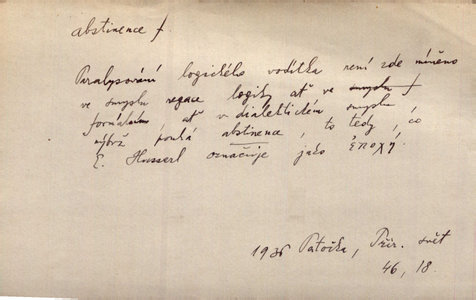 abstinence f.
Paralysování logického vodítka není zde míněno
ve smyslu negace logiky ať ve smyslu f
formálním, ať v dialektickém smyslu,
nýbrž pouhá abstinence, to tedy, co
E. Husserl označuje jako ἐποχή.
1936 Patočka, Přir. svět
46, 18.